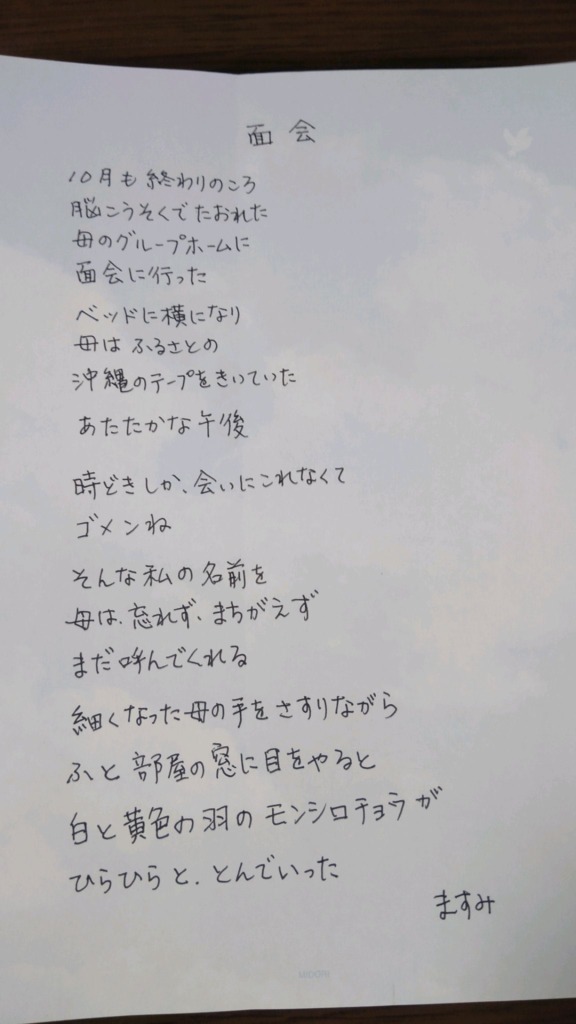 面会
10月も終わりのころ
脳こうそくでたおれた
母のグループホームに
面会に行った
ベッドに横になり
母はふるさとの
沖縄のテープをきいていた
あたたかな午後
時どきしか、会いにこれなくて
ゴメンね
そんな私の名前を
母は、忘れず、まちがえず
まだ呼んでくれる
細くなった母の手をさすりながら
ふと部屋の窓に目をやると
白と黄色の羽のモンシロチョウが
ひらひらと、とんでいった
ますみ